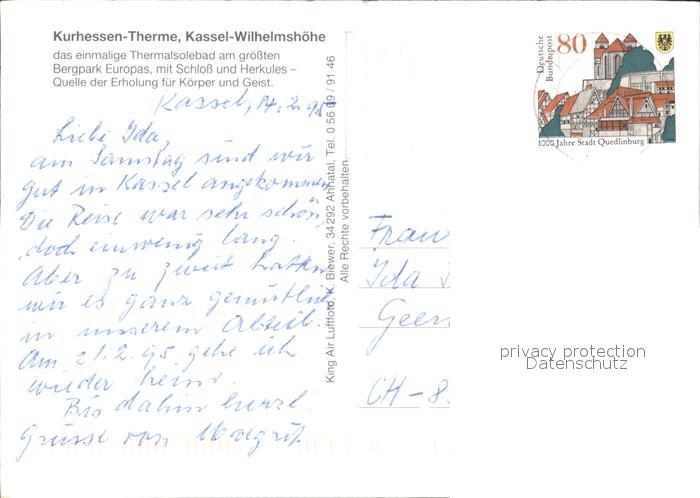 Kurhessen-Therme, Kassel-Wilhelmshöhe
das einmalige Thermalsolebad am größten
Bergpark Europas, mit Schloß und Herkules –
Quelle der Erholung für Körper und Geist.
Kassel, 14.2.95
Liebe Ida,
am Samstag sind wir
gut in Kassel angekommen.
Die Reise war sehr schön,
doch einwenig lang.
Aber zu zweit hatten
wir es ganz gemütlich
in unserem Abteil.
Am 21.2.95 gehe ich
wieder heim.
Bis dahin herzl.
Grüsse von Margrit
King Air Luftfoto, K. Biewer, 34292 Ahnatal, Tel. 0 56 09 / 91 46
Alle Rechte vorbehalten.
Deutsche
Bundespost
80
1000 Jahre Stadt Quedlinburg
Frau
Ida
Geer
CH - 8
privacy protection
Datenschutz